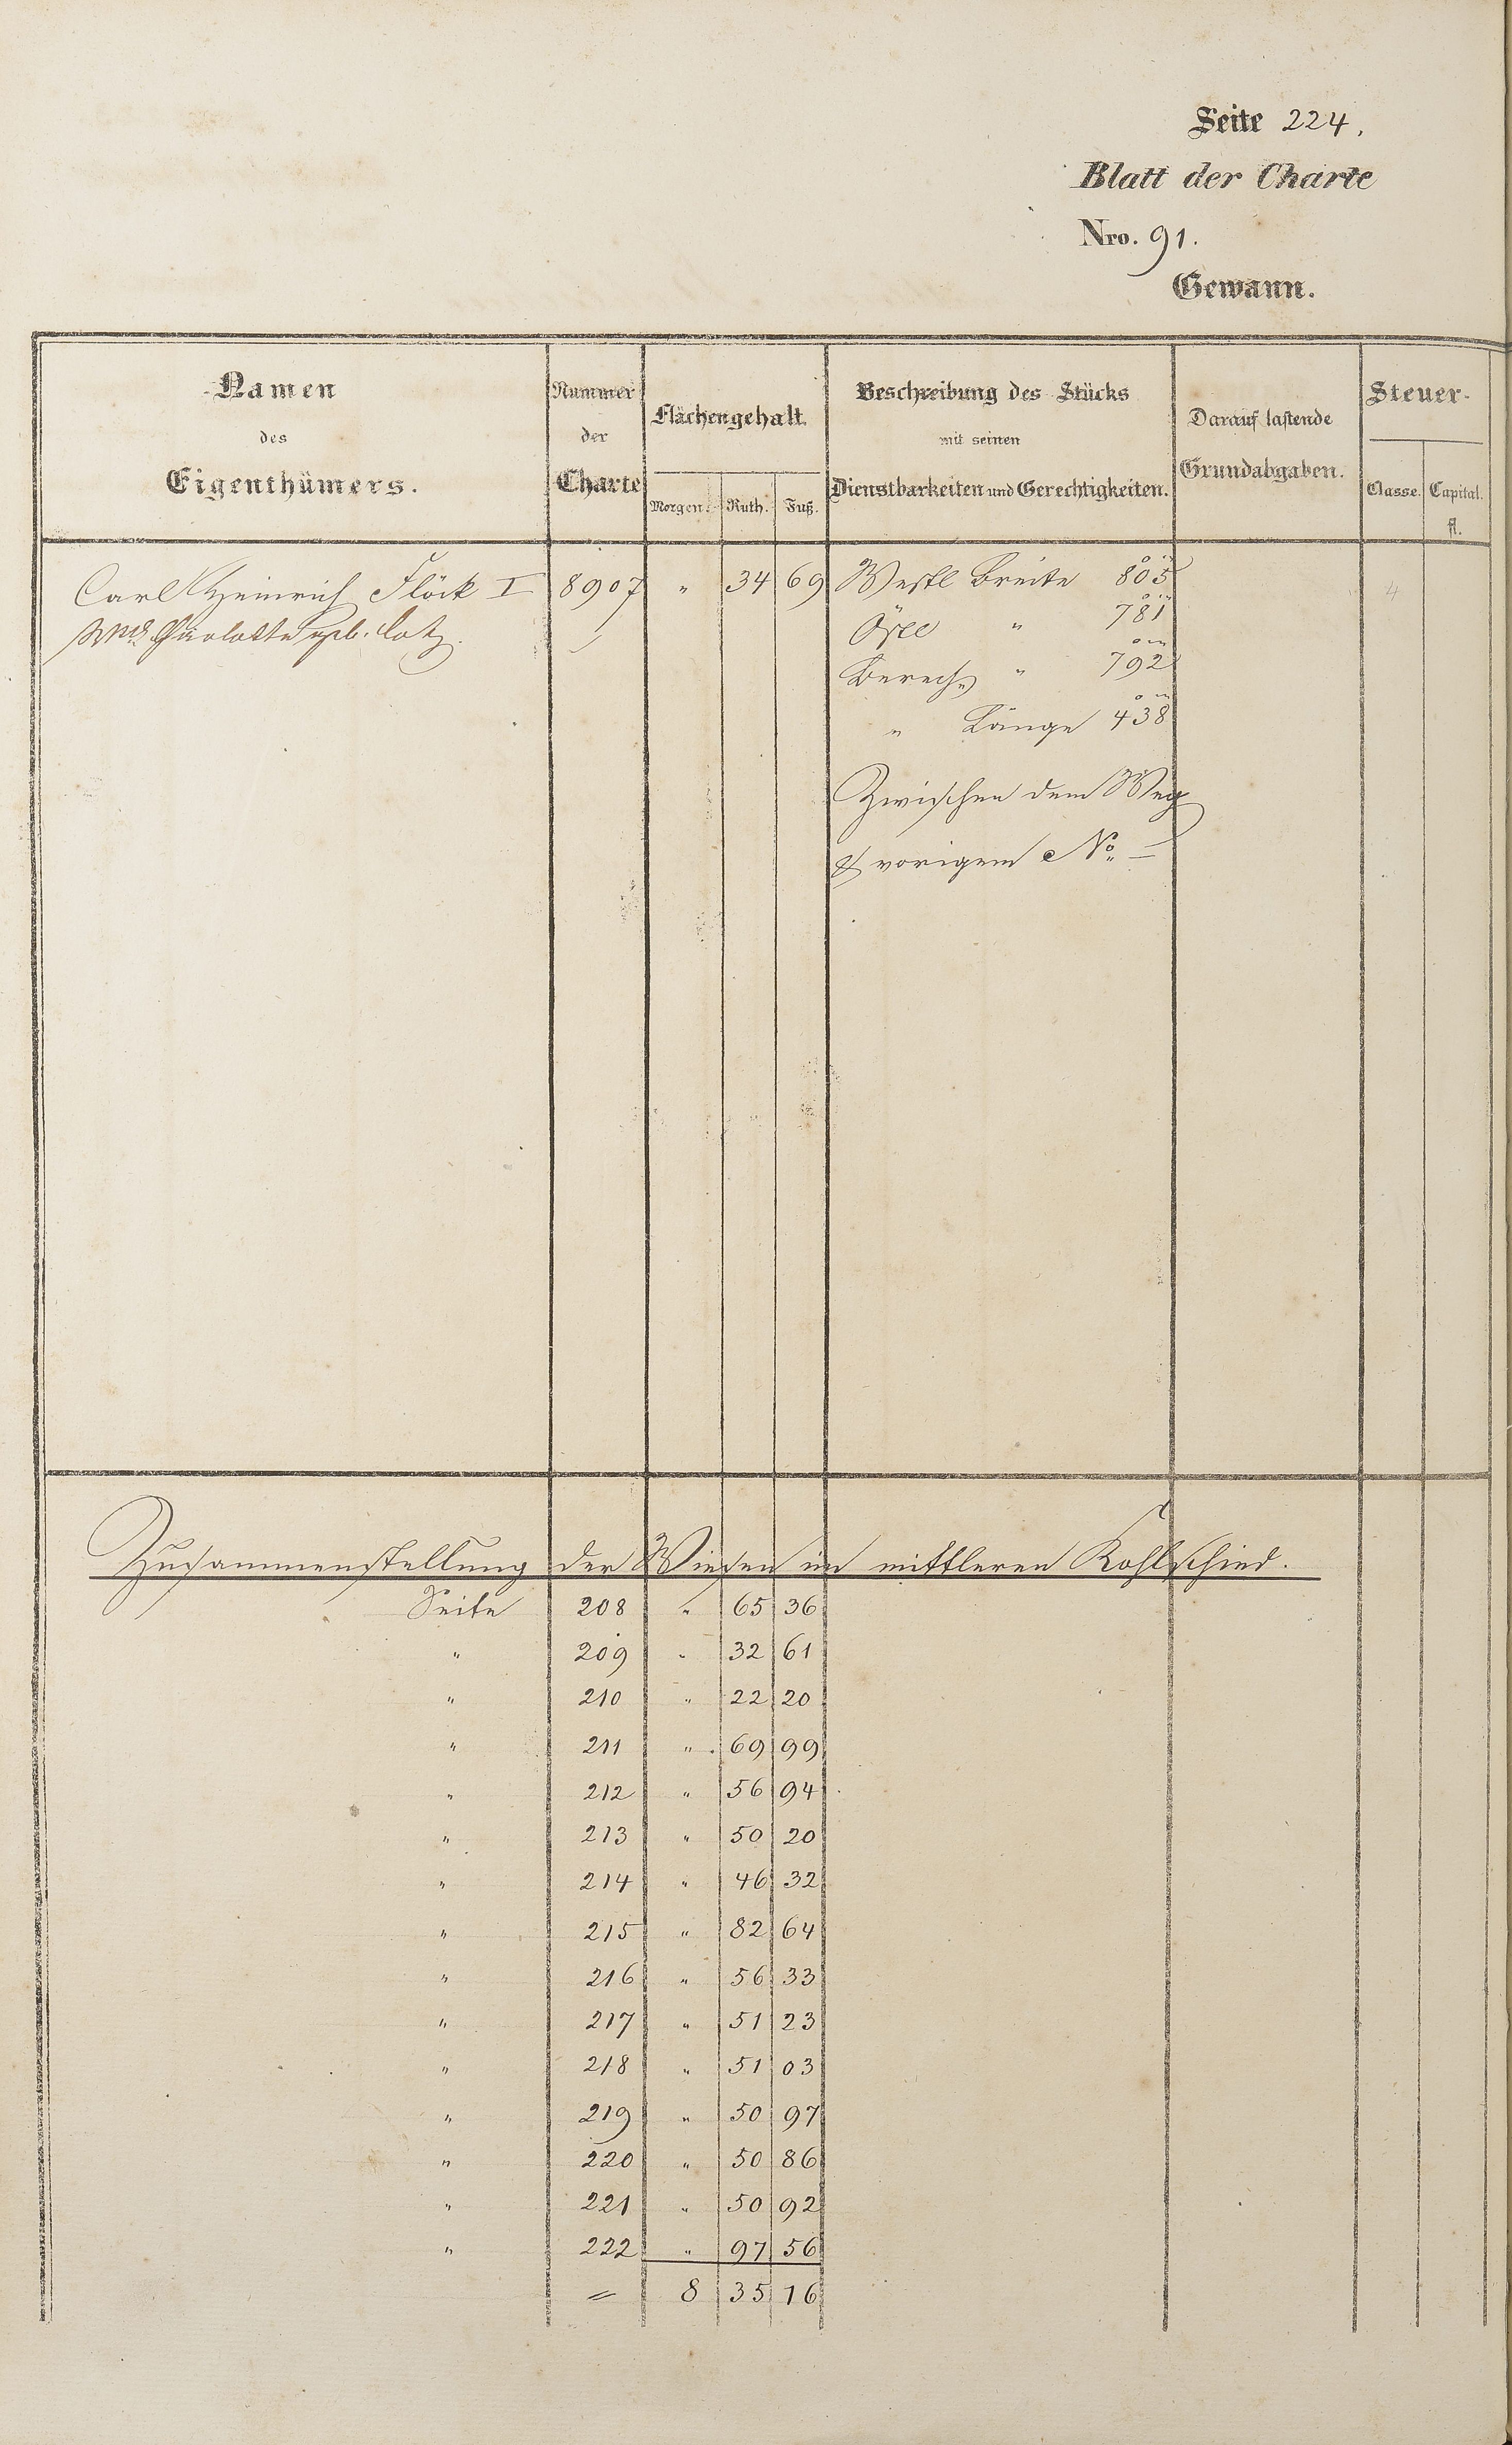 Seite 224.
Blatt der Charte
Nro. 91.
Gewann.
Namen des Eigenthümers.
Nummer der Charte
Flächengehalt.
Morgen. Ruth. Fuß.
Beschreibung des Stücks mit seinen Dienstbarkeiten und Gerechtigkeiten.
Darauf lastende Grundabgaben.
Steuer-
Classe. Capital. fl.
Carl Heinrich Flöck I 8907 " 34 69 Westl Breite 805
geb. Lotz. Östl " 781
Berech " 792
" Länge 438
Zwischen dem Weg
& vorigem No. –
4
Zusammenstellung der Wiesen im mittleren Kohlschied.
Seite 208 " 65 36
" 209 " 32 61
" 210 " 22 20
" 211 " 69 99
" 212 " 56 94
" 213 " 50 20
" 214 " 46 32
" 215 " 82 64
" 216 " 56 33
" 217 " 51 23
" 218 " 51 03
" 219 " 50 97
" 220 " 50 86
" 221 " 50 92
" 222 " 97 56
= 8 35 16